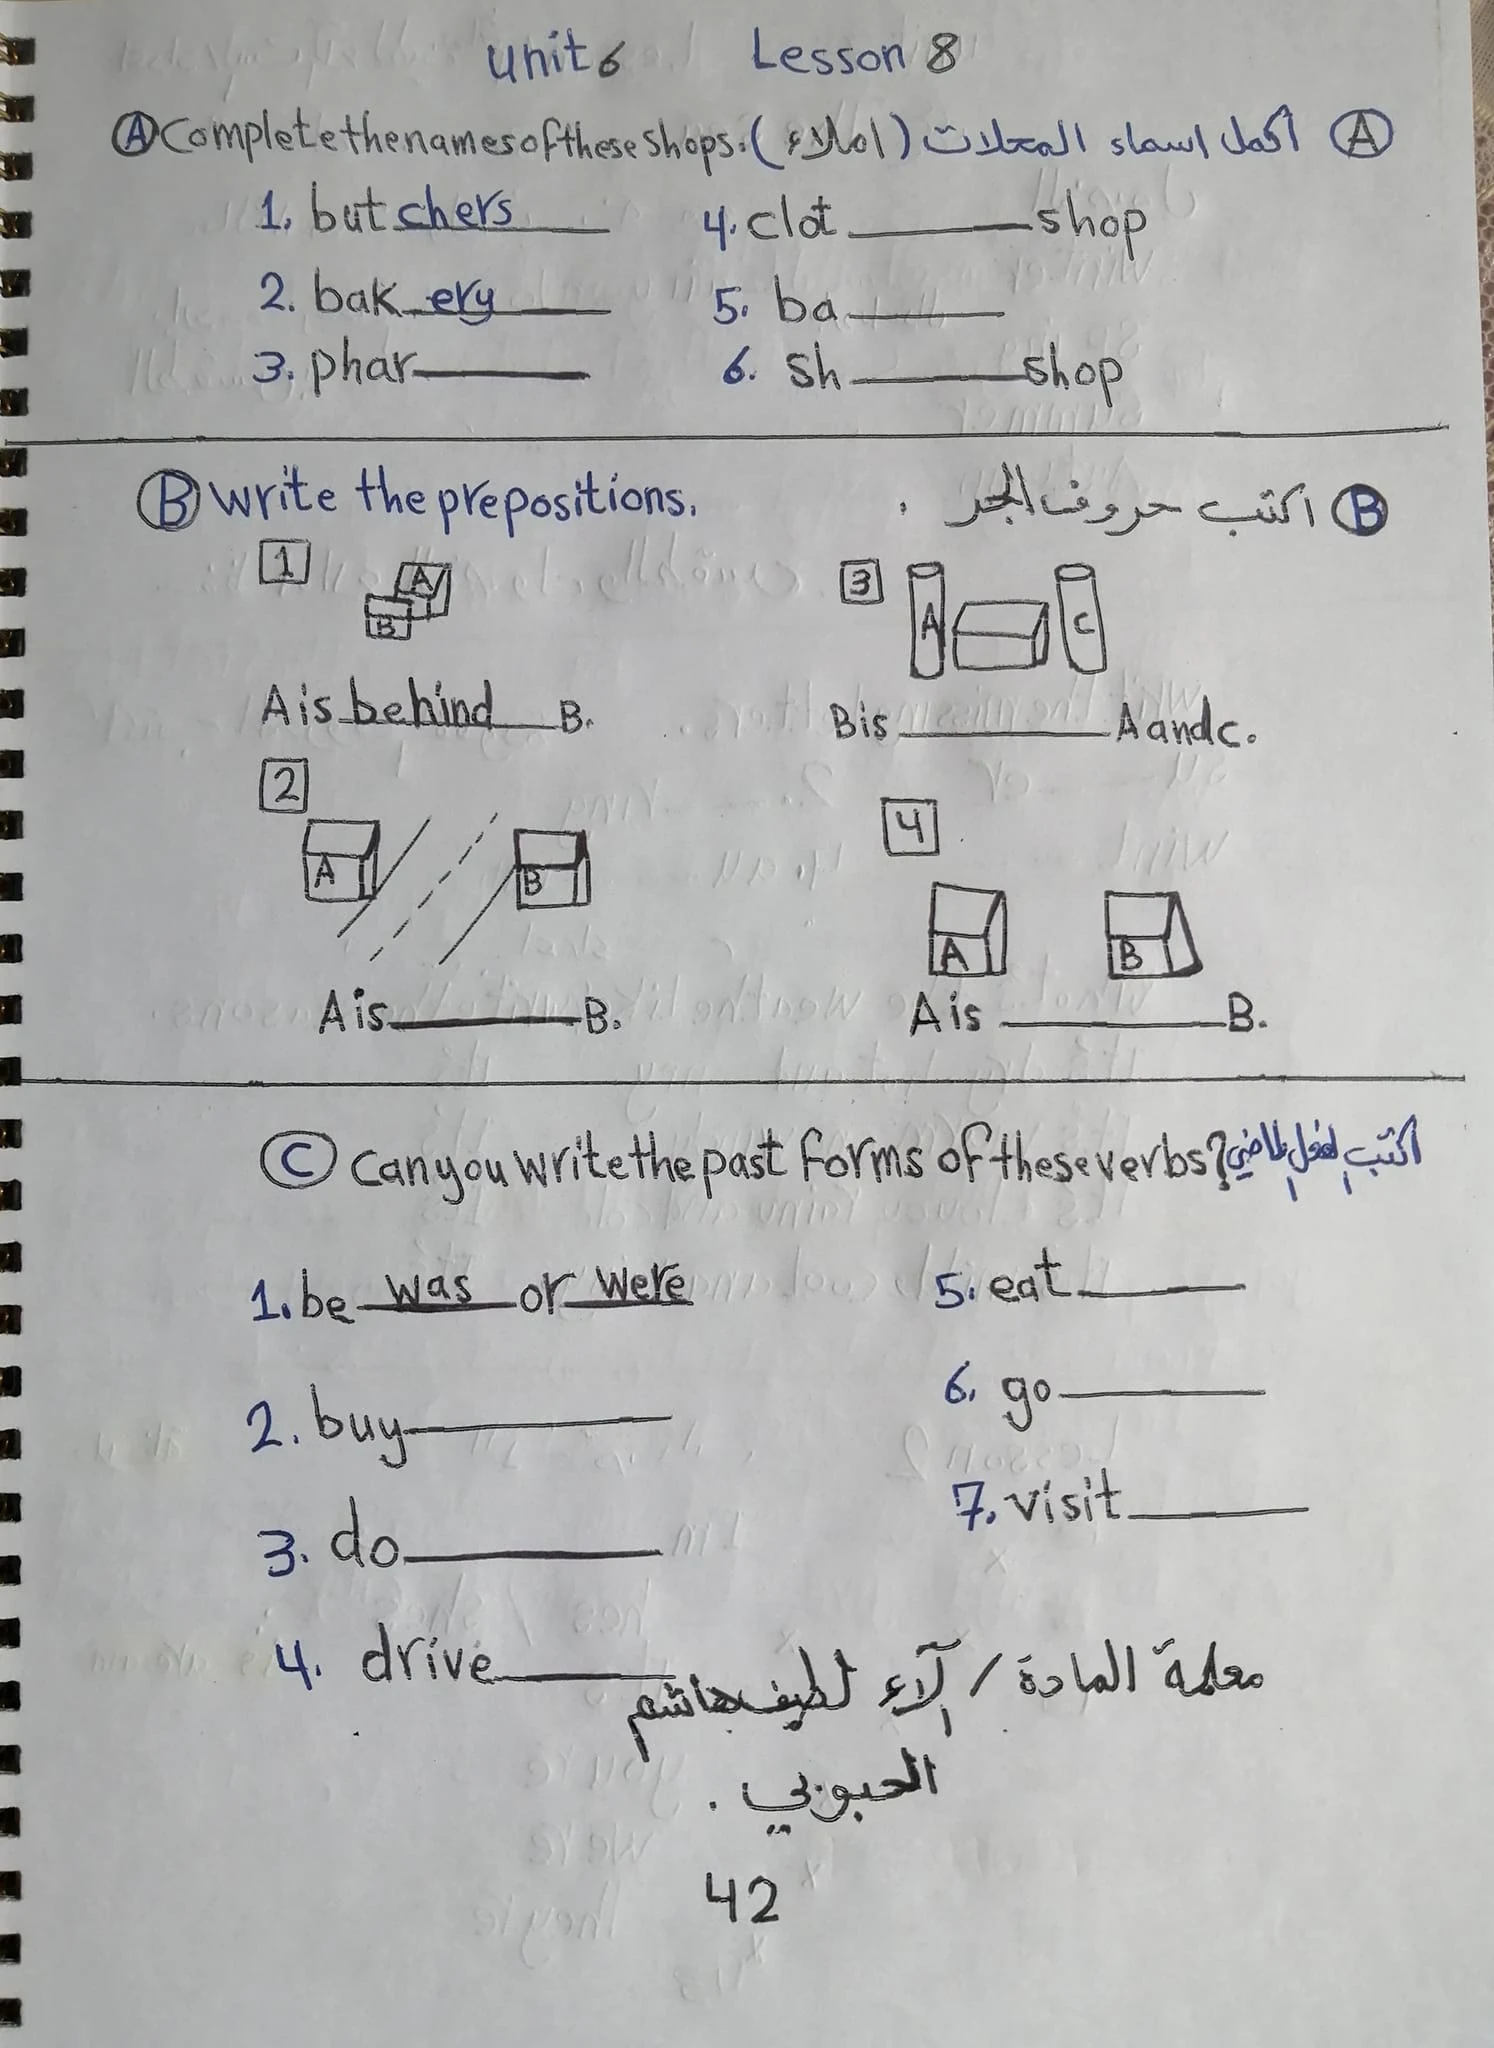 unit 6 Lesson 8
Ⓐ Complete the names of these shops. (املاء) أكمل اسماء المحلات Ⓐ
1. butchers 4. clot______shop
2. bakery 5. ba______
3. phar______ 6. sh______shop
Ⓑ write the prepositions. Ⓑ اكتب حروف الجر .
1 A B
3 A C
A is behind B. B is ______ A and c.
2 A B
4 A B
A is ______ B. A is ______ B.
Ⓒ can you write the past forms of these verbs? اكتب الفعل الماضي
1. be was or were 5. eat ______
2. buy ______ 6. go ______
3. do ______ 7. visit ______
4. drive ______
معلمة المادة / آلاء لطيف هاشم
الحبوبي .
42